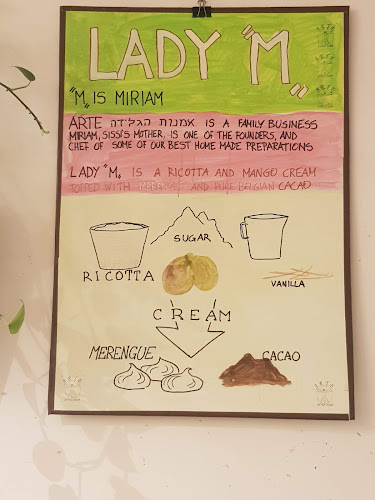 LADY "M„
"M„ IS MIRIAM
ARTE אמנות הגלידה IS A FAMILY BUSINESS
MIRIAM, SISSI'S MOTHER, IS ONE OF THE FOUNDERS, AND
CHEF OF SOME OF OUR BEST HOME MADE PREPARATIONS
LADY "M„ IS A RICOTTA AND MANGO CREAM
TOPPED WITH MERENGUE AND PURE BELGIAN CACAO
SUGAR
RICOTTA
VANILLA
CREAM
MERENGUE
CACAO